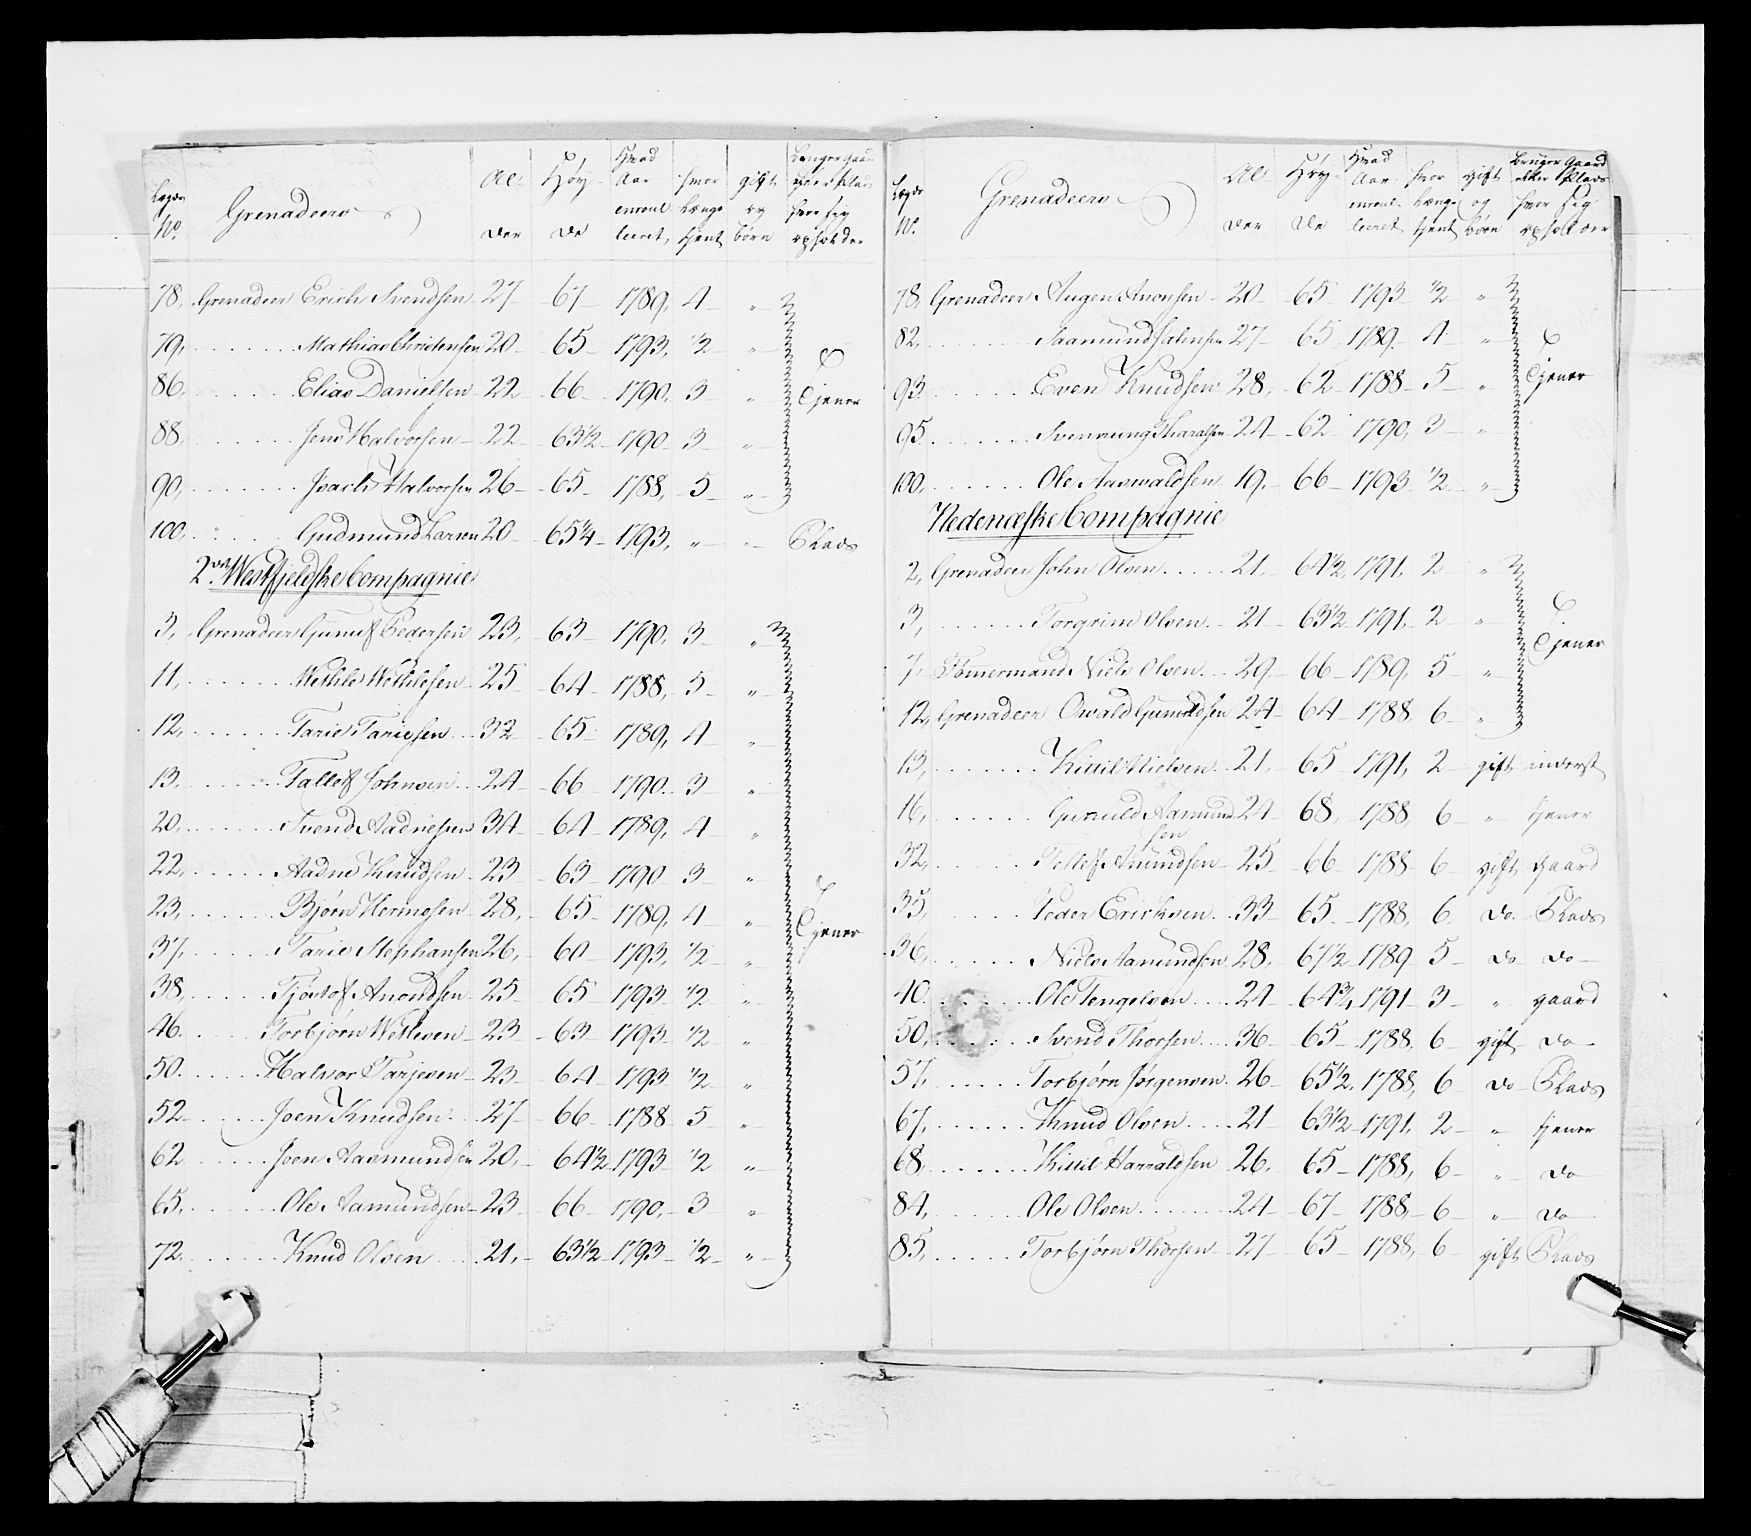 Lægds No. Grenadeers Al- der Høy- de Hvad Aar enroul- leeret, hvor længe tjent gift og børn Bruger Gaard eller Plads hvor sig opholder
78, Grenadeer Erich Svendsen 27 67 1789, 4 "
79, Mathias Christensen 20 65 1793, ½ "
86, Elias Danielsen 22 66 1790, 3 " Tjener
88, Jens Halvorsen 22 63½ 1790 3 "
90, Isach Halvorsen 26 65 1788, 5 "
100, Gudmund Larsen 20 65¼ 1793, " " Plads
2den Westfjeldske Compagnie
3, Grenadeer Gunulf Pedersen 23, 63 1790, 3 "
11, Wethle Wethlesen 25 64 1788, 5 "
12, Tarie Tariesen 32 65 1789, 4 "
13, Tallef Johnsen 24 66 1790 3 "
20, Svend Aadnesen 34 64 1789, 4 "
22, Aadne Knudsen 23 63 1790 3 "
23, Bjørn Hermosen 28, 65 1789, 4 " Tjener
37, Tarie Stephansen 26, 60 1793, ½ "
38, Tjøstof Anondsen 25 65 1793 ½ "
46. Torbjørn Wetlesen 23 63 1793 ½ "
50. Halvor Tarjesen 23 64 1793 ½ "
52 Joen Knudsen 27 66 1788 5 "
62 Joen Aasmundsen 20, 64½ 1793 ½ "
65, Ole Aamundsen 23 66 1790, 3 "
72, Knud Olsen 21, 63½ 1793 ½ "
Lægds No. Grenadeers Al- der Høy- de Hvad Aar enroul- leeret hvor længe tjent gift og børn Bruger Gaard eller Plads hvor sig opholder
78, Grenadeer Augen Anonsen 20 65 1793 ½ "
82, Saamund 27 65 1789 4 "
93. Even Knudsen 28, 62 1788 5 " Tjener
95. Svennung Tharalsen 24 62 1790, 3 "
100, Ole Aaswaldsen 19. 66 1793 ½ "
Nedenæske Compagnie
2, Grenadeer John Olsen 21 64½, 1791, 2 "
3, Torgrim Olsen 21 63½ 1791, 2 " Tjener
7, Tømermand Niels Olsen 29 66 1789, 5 "
12, Grenadeer Oswald Gunuldsen 24 64 1788 6 "
13, Kittil Nielsen 21, 65 1791, 2 gift inderst
16, Gunuld Aamundsen 24 68, 1788 6 " tjener
32, Tellef Anundsen 25 66 1788 6 gift gaard
35, Peder Ericksen 33 65 1788, 6 do Plads
36, Niels Aamundsen 28, 67½ 1789 5 do do
40. Ole Tengelsen 24 64¾ 1791 3 " gaard
50, Svend Thorsen 36 65 1788, 6 gift do
57, Torbjørn Jørgensen 26 65½, 1788, 6 do Plads
67, Knud Olsen 21 63½ 1791, 2 " tjener
68, Kittil Harraldsen 26, 65 1788, 6 " do
84, Ole Olsen 24 67 1788 6 " do
85, Torbjørn Thorsen 27 65 1788, 6 gift Plads